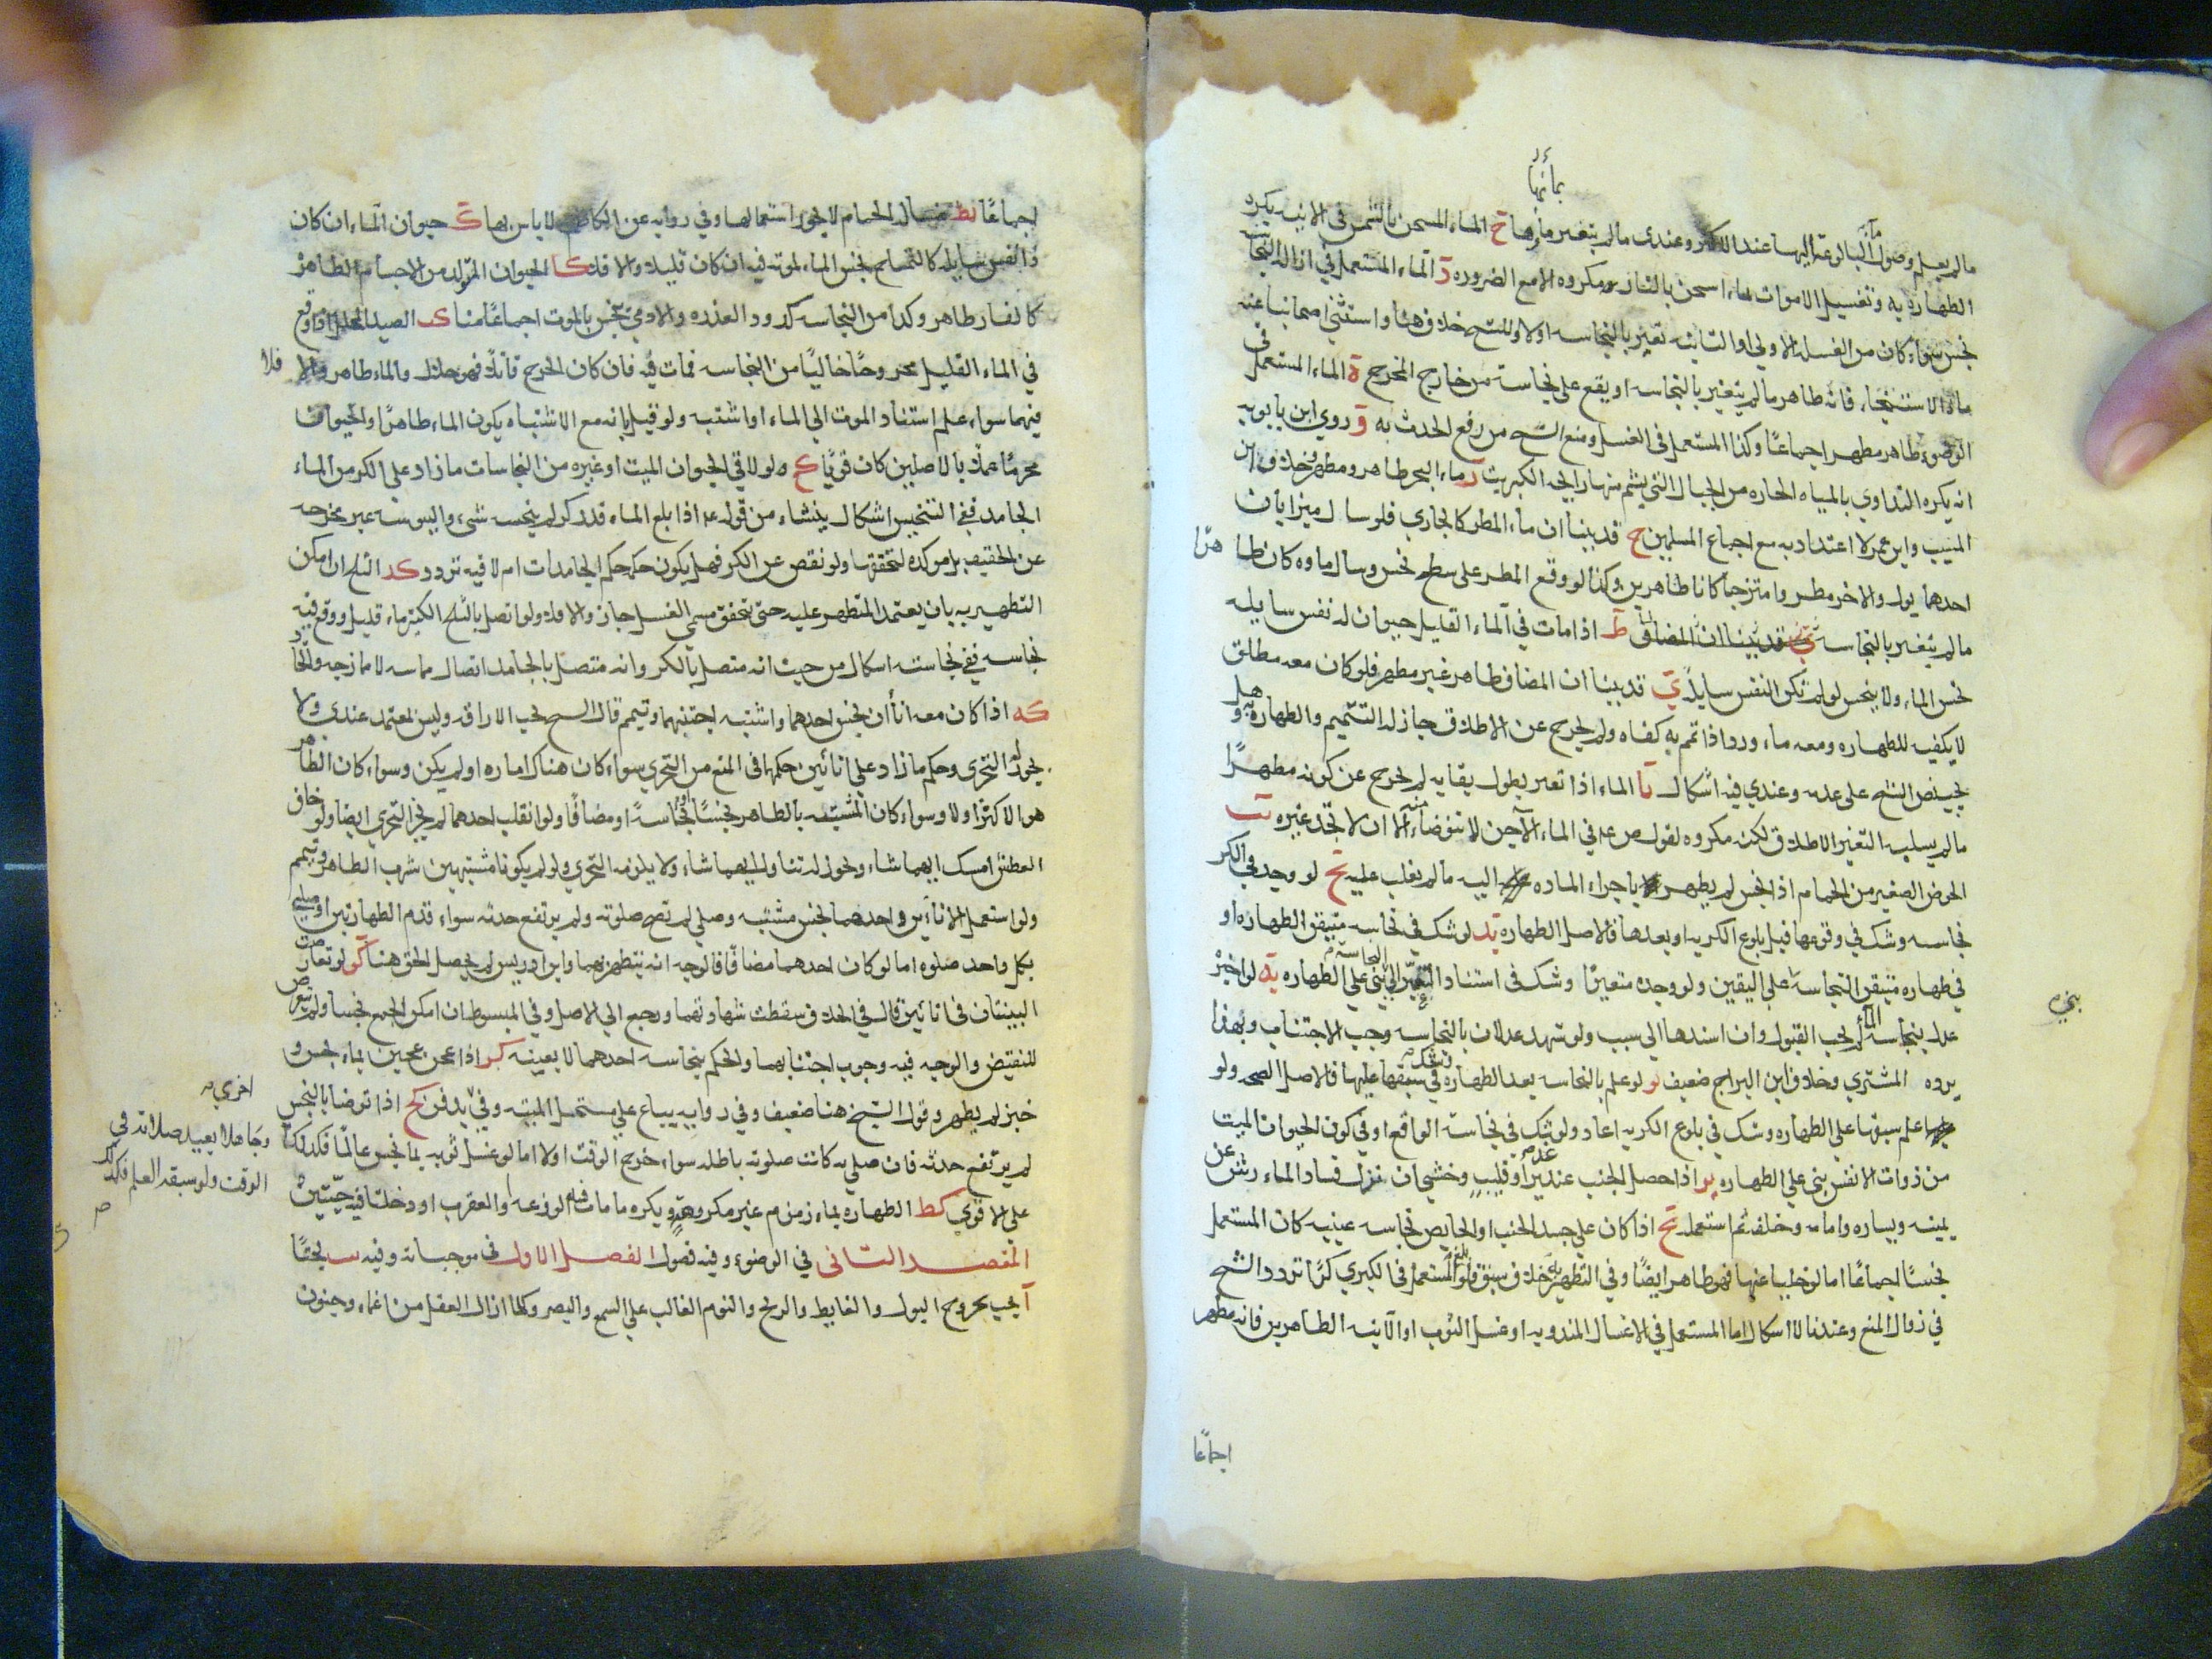 بمائها
مالم يعلم وصول ماء البالوعة اليها عند الاكثر وعندى مالم يتغير ماؤها ج الماء المسخن بالشمس فى الانيه يكره
الطهارة به وتغسيل الاموات بماء اسخن بالنار مكروه الا مع الضروره د الماء المستعمل في ازالة النجاسات
نجس سواء كان من الغسله الاولى او الثانيه تغير بالنجاسه اولا وللشيخ خلاف هنا واستثنى اصحابنا عنه
ماء الاستنجاء فانه طاهر مالم يتغير بالنجاسه او يقع على نجاسة من خارج المخرج ه الماء المستعمل في
الوضوء طاهر مطهر اجماعا وكذا المستعمل فى الغسل ومنع الشيخ من رفع الحدث به و روي ابن بابويه
انه يكره التداوي بالمياه الحاره من الجبال التي يشم منها رايحه الكبريت ز ماء البحر طاهر ومطهر وخلاف ابن
المسيب وابن عمر لا اعتداد به مع اجماع المسلمين ح قد بينا ان ماء المطر كالجاري فلو سال ميزابان
احدهما بول والاخر مطر وامتزجا كانا طاهرين وكذا لو وقع المطر على سطح نجس وسال ماوه كان طا هرا
مالم يتغير بالنجاسه قد بينا ان المضاف ط اذا مات في الماء القليل حيوان له نفس سايله
نجس الماء ولا ينجس لو لم تكن النفس سايلة ي قد بينا ان المضاف طاهر غير مطهر فلو كان معه مطلق
لا يكفيه للطهاره ومعه ماء ورد اذا تمم به كفاه ولم يخرج عن الاطلاق جاز له التتميم والطهاره به وهل
يجب نص الشيخ على عدمه وعندي فيه اشكال يا الماء اذا تغير بطول بقايه لم يخرج عن كونه مطهرا
مالم يسلبه التغير الاطلاق لكنه مكروه لقوله ع م في الماء الآجن لا تتوضأ منه الا ان لا تجد غيره يب
الحوض الصغير من الحمام اذا نجس لم يطهر باجراء الماده اليه مالم يغلب عليه يج لو وجد في الكر
نجاسه وشك في وقوعها قبل بلوغ الكريه او بعدها فالاصل الطهاره يد لو شك في نجاسه متيقن الطهاره او
في طهاره متيقن النجاسه بنى على اليقين ولو وجده متغيرا وشك فى استناد التغير الي النجاسة بنى على الطهاره يه لو اخبر
بخره
عدل بنجاسة الماء لم يجب القبول وان اسندها الي سبب ولو شهد عدلان بالنجاسه وجب الاجتناب وبهذا
يرده المشتري وخلاف ابن البراج ضعيف يو لو علم بالنجاسه بعد الطهاره وشك في سبقها عليها فالاصل الصحه ولو
علم سبقها على الطهاره وشك في بلوغ الكريه اعاد ولو شك في نجاسة الواقع او في كون الحيوان الميت
من ذوات الانفس بنى علي الطهاره يز اذا حصل الجنب عند غدير او قليب وخشي ان نزل فساد الماء رش عن
يمينه ويساره وامامه وخلفه ثم استعمله يح اذا كان على جسد الجنب او الحايض نجاسه عينيه كان المستعمل
نجسا اجماعا اما لو خليا عنها فهو طاهر ايضا وفي التطهير به خلاف سبق فلو بلغ المستعمل فى الكبري كرا تردد الشيخ
في زوال المنع وعندنا لا اشكال اما المستعمل في الاغسال المندوبه او غسل الثوب او الآنيه الطاهرين فانه مطهر
اجماعا
اجماعا يط غساله الحمام لا يجوز استعمالها وفي روايه عن الكاظم لا باس بها ك حيوان الماء ان كان
ذا نفس سايله كالتمساح نجس الماء بموته فيه ان كان قليلا والا فلا كا الحيوان المتولد من الاجسام الطاهره
كالفار طاهر وكذا من النجاسه كدود العذره والادمي ينجس بالموت اجماعا منا كب الصيد المحلل اذا وقع
في الماء القليل مجروحا خاليا من النجاسه فمات فيه فان كان الجرح قاتلا فهو حلال والماء طاهر والا فلا
فيهما سواء علم استناد الموت الي الماء او اشتبه ولو قيل بانه مع الاشتباه يكون الماء طاهرا والحيوان
محرما عملا بالاصلين كان قويا كج لو لاقي الحيوان الميت او غيره من النجاسات ما زاد على الكر من الماء
الجامد ففي التنجيس اشكال ينشاء من قوله ع م اذا بلغ الماء قدر كر لم ينجسه شيء واليبوسه غير مخرجه
عن الحقيقه بل موكده لتحققها ولو نقص عن الكر فهل يكون حكمه حكم الجامدات ام لا فيه تردد كد الثلج ان امكن
التطهير به بان يعتمد المتطهر عليه حتى يتحقق مسمى الغسل جاز والا فلا ولو اتصل بالثلج الكثير ماء قليل ووقع فيه
نجاسه ففي نجاسته اشكال من حيث انه متصل بالكر وانه متصل بالجامد اتصال مماسه لا ممازجه واتحاد
كه اذا كان معه اناأن نجس احدهما واشتبه اجتنبهما وتيمم قال الشيخ يجب الاراقه وليس بمعتمد عندي ولا
يجوز له التحري وحكم ما زاد على انائين حكمهما فى المنع من التحري سواء كان هناك اماره او لم يكن وسواء كان الطاهر
هو الاكثر اولا وسواء كان المشتبه بالطاهر نجسا او نجاسة او مضافا ولو انقلب احدهما لم يجز التحري ايضا ولو خاف
العطش امسك ايهما شاء ويجوز له تناول ايهما شاء ولا يلزمه التحري ولو لم يكونا مشتبهين شرب الطاهر وتيمم
ولو استعمل الاناءين واحدهما نجس مشتبه وصلي لم تصح صلوته ولم يرتفع حدثه سواء قدم الطهارتين او صلي
بكل واحد صلوه اما لو كان احدهما مضافا فالوجه انه يتطهر بهما وابن ادريس لم يحصل الحق هنا كو لو تعارضت
البينتان فى انائين قال في الخلاف سقطت شهادتهما ورجع الي الاصل وفي المبسوط ان امكن الجمع نجسا ولم يتعرض
للنقيض والوجه فيه وجوب اجتنابهما والحكم بنجاسه احدهما لا بعينه كز اذا عجن عجين بماء نجس و
خبز لم يطهر وقول الشيخ هنا ضعيف وفي روايه يباع علي مستحل الميته وفي اخري يدفن كح اذا توضا بالنجس
لم يرتفع حدثه فان صلى به كانت صلوته باطله سواء خرج الوقت اولا اما لو غسل ثوبه بماء نجس عالما فكذلك
وجاهلا يعيد صلاته في
الوقت ولو سبقه العلم فكذلك
علي الاقوي كط الطهاره بماء زمزم غير مكروهة ويكره ما مات فيه الوزغه والعقرب او دخلتا فيه حيتين
المقصد الثانى في الوضوء وفيه فصول الفصل الاول فى موجباته وفيه بحثا
آ يجب بخروج البول والغايط والريح والنوم الغالب علي السمع والبصر وكلما ازال العقل من اغماء وجنون